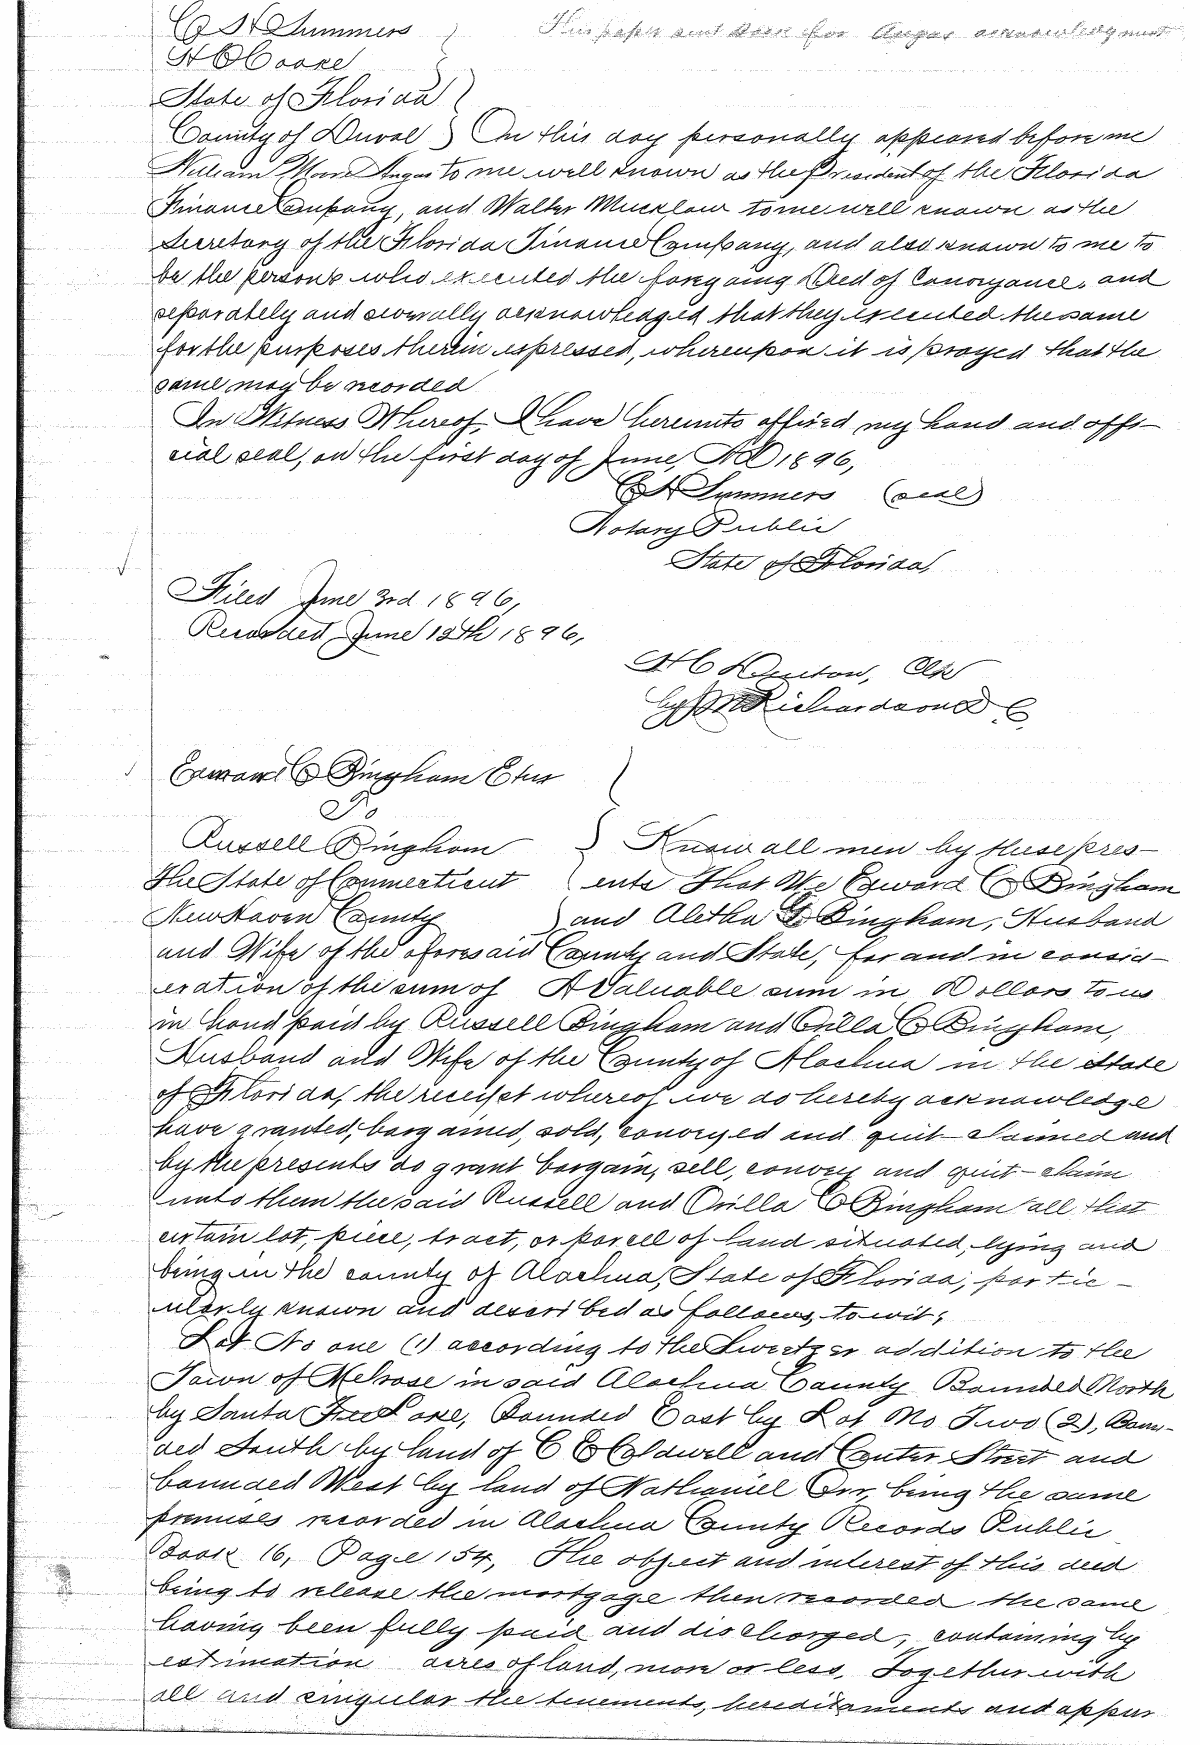 C H Summers
This paper sent back for Angas acknowledgment
H B Cooke
State of Florida
County of Duval } On this day personally appeared before me
William Moore Angas to me well known as the President of the Florida
Finance Company, and Walter Mucklow to me well known as the
Secretary of the Florida Finance Company, and also known to me to
be the persons who executed the foregoing Deed of Conveyance, and
separately and severally acknowledged that they executed the same
for the purposes therein expressed, whereupon it is prayed that the
same may be recorded
In Witness Whereof, I have hereunto affixed my hand and offi-
cial seal, on the first day of June, AD 1896,
C H Summers (seal)
Notary Public
State of Florida,
Filed June 3rd 1896,
Recorded, June 12th 1896,
H C Denton, Clk
by Richardson D C
Edward C Bingham Etux
To
Russell Bingham } Know all men by these pres-
The State of Connecticut } ents That We Edward C Bingham
New Haven County } and Aletha G Bingham, Husband
and Wife of the aforesaid County and State, for and in consid-
eration of the sum of A Valuable sum in Dollars to us
in hand paid by Russell Bingham and Orilla C Bingham,
Husband and Wife of the County of Alachua in the State
of Florida, the receipt whereof we do hereby acknowledge
have granted, bargained, sold, conveyed and quit-claimed and
by the presents do grant bargain, sell, convey and quit-claim
unto them the said Russell and Orilla C Bingham all that
certain lot, piece, tract, or parcell of land situated, lying and
being in the county of Alachua, State of Florida, partic-
ularly known and described as follows, to wit;
Lot No one (1) according to the Sweetzer addition to the
Town of Melrose in said Alachua County Bounded North
by Santa Fee Lake, Bounded East by Lot No Two (2), Boun-
ded South by land of C C Coldwell and Center Street and
bounded West by land of Nathaniel Orr, being the same
premises recorded in Alachua County Records Public
Book 16, Page 154, The object and interest of this deed
being to release the mortgage then recorded the same
having been fully paid and discharged, containing by
estimation acres of land, more or less, Together with
all and singular the tenements, hereditaments and appur